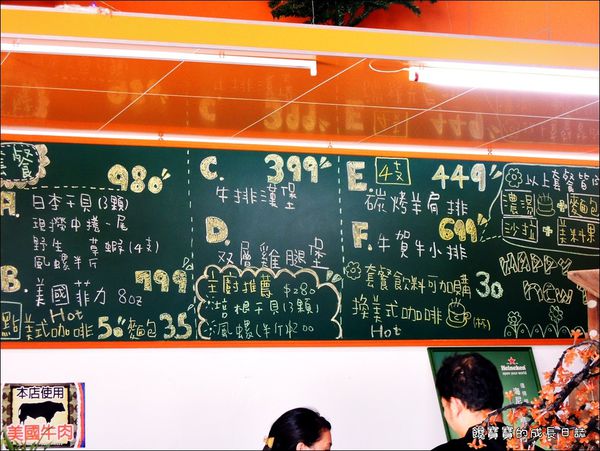 套餐 980
A.
日本干貝(3顆)
現撈中捲一尾
野生 草蝦(4支)
風螺半斤
B. 799
美國菲力 8oz
點美式咖啡 50 麵包 35
Hot
C. 399
牛排漢堡
D.
双層雞腿堡
主廚推薦 $280
培根干貝(3顆)
風螺(半斤)200
E. 4支 449
碳烤羊肩排
F. 699
牛賀牛小排
套餐飲料可加購 30
換美式咖啡 (杯)
Hot
以上套餐皆
濃湯 + 麵包
沙拉 + 美半果
HAPPY
NEW
本店使用
美國牛肉
Heineken
饌寶寶的成長日誌